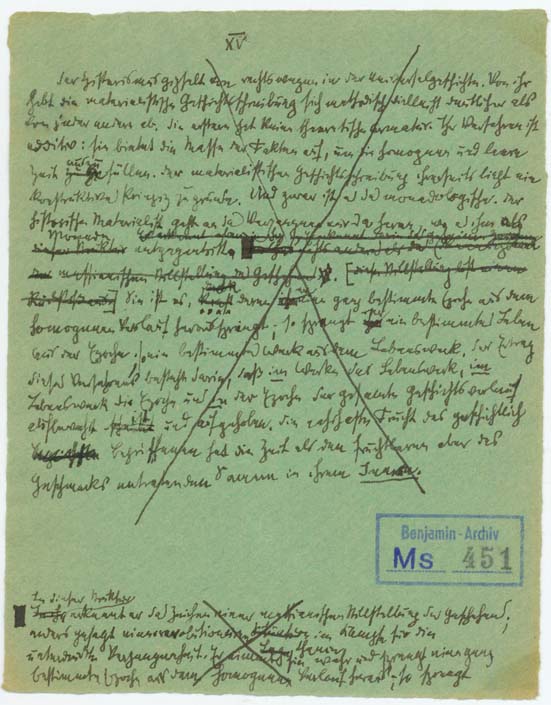 XV
Der Historismus gipfelt von rechtswegen in der Universalgeschichte. Von ihr
hebt die materialistische Geschichtsschreibung sich methodisch vielleicht deutlicher als
von jeder andern ab. Die erstere hat keine theoretische Armatur. Ihr Verfahren ist
additiv: sie bietet die Masse der Fakten auf, um die homogene und leere
Zeit auszufüllen. Der materialistischen Geschichtsschreibung ihrerseits liegt ein
konstruktives Prinzip zu grunde. Und zwar ist es das monadologische. Der
historische Materialist geht an das Vergangne nur da heran, wo es ihm als
Monade
dieser Struktur entgegentritt.
messianischen Stillstellung des Geschehens. [diese Stillstellung
die ist es, kraft deren er eine ganz bestimmte Epoche aus dem
homogenen Verlauf heraussprengt; so sprengt er ein bestimmtes Leben
aus der Epoche, ein bestimmtes Werk aus dem Lebenswerk. Der Ertrag
dieses Verfahrens besteht darin, daß im Werke das Lebenswerk, im
Lebenswerk die Epoche und in der Epoche der gesamte Geschichtsverlauf
aufbewahrt ist und aufgehoben. Die nahrhafte Frucht des geschichtlich
Begriffenen hat die Zeit als den fruchtbaren aber des
Geschmacks entratenden Samen in ihrem Innern.
Benjamin-Archiv
Ms 451
In dieser Struktur
erkennt er das Zeichen einer messianischen Stillstellung des Geschehens;
anders gesagt einer revolutionären Chance im Kampfe für die
unterdrückte Vergangenheit. Er nimmt sie wahr und sprengt eine ganz
bestimmte Epoche aus dem homogenen Verlauf heraus; so sprengt